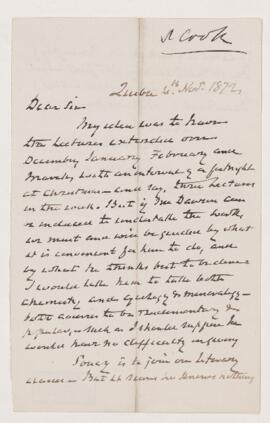 J Cook
Quebec 4th Novr. 1872
Dear Sir
My idea was to have
the lectures extended over
December January February and
March with an interval of a fortnight
at Christmas and say, three lectures
in the week. But if Mr Dawson can
be induced to undertake the work,
we must and will be guided by what
it is convenient for him to do, and
by what he thinks best to be done
I would like him to take both
chemistry, and Geology & mineralogy
both courses to be rudimentary &
popular, such as I should suppose he
would have no difficulty in giving
is to join our literary
But it seems he knows nothing